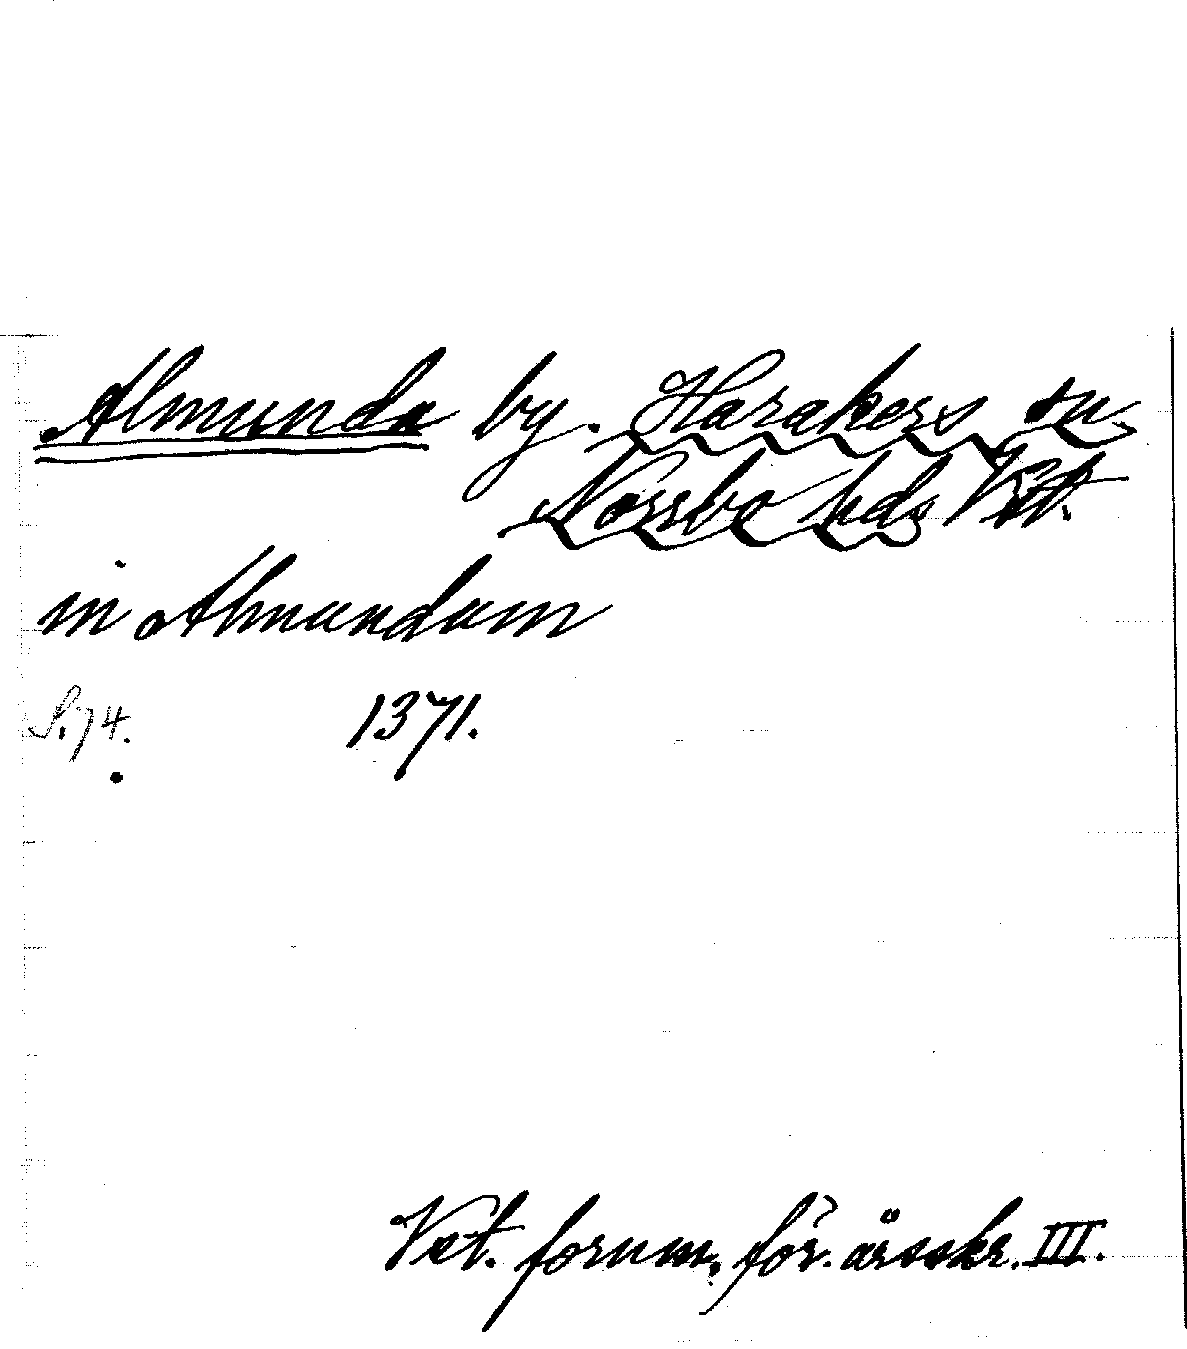 Almunda by. Harakers sn,
Norrbo hds Vst.
in Almundum
S. 74. 1371.
Vst. fornm. för. årsskr. III.